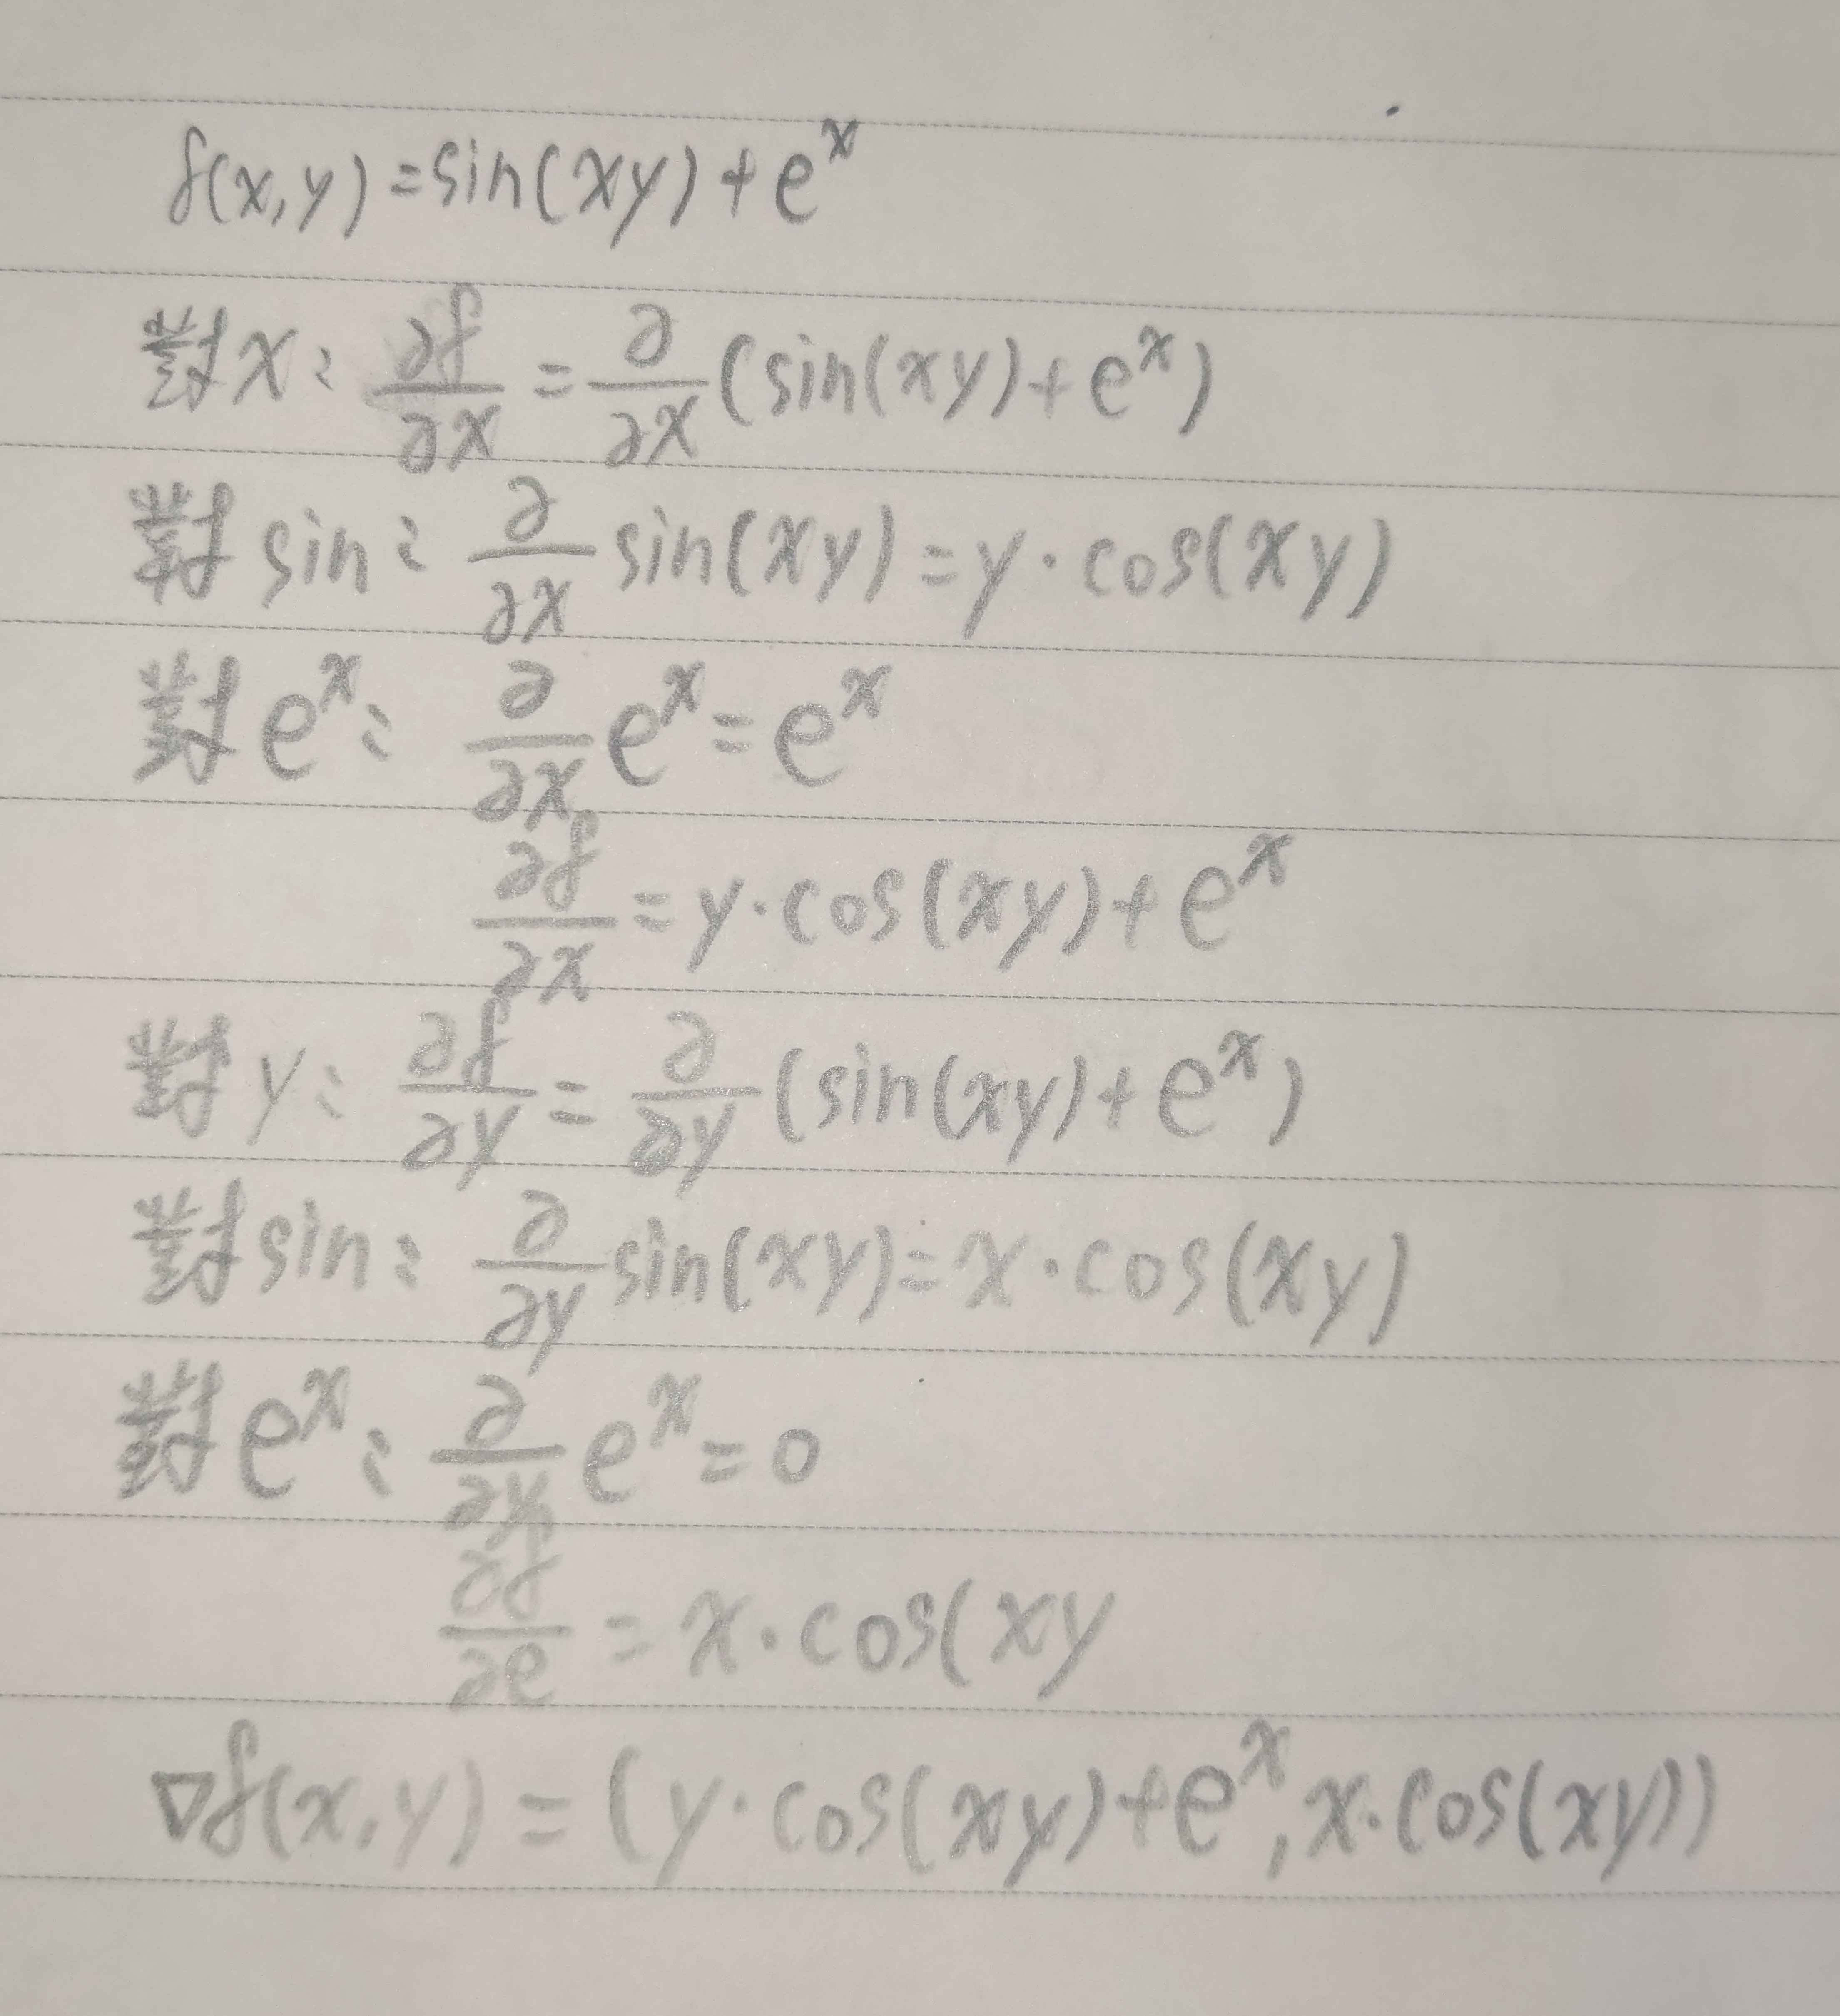 f(x,y)=sin(xy)+e^x
對x: ∂f/∂x = ∂/∂x (sin(xy)+e^x)
對sin: ∂/∂x sin(xy)=y·cos(xy)
對e^x: ∂/∂x e^x=e^x
∂f/∂x = y·cos(xy)+e^x
對y: ∂f/∂y = ∂/∂y (sin(xy)+e^x)
對sin: ∂/∂y sin(xy)=x·cos(xy)
對e^x: ∂/∂y e^x=0
∂f/∂e = x·cos(xy
∇f(x,y)=(y·cos(xy)+e^x,x·cos(xy))